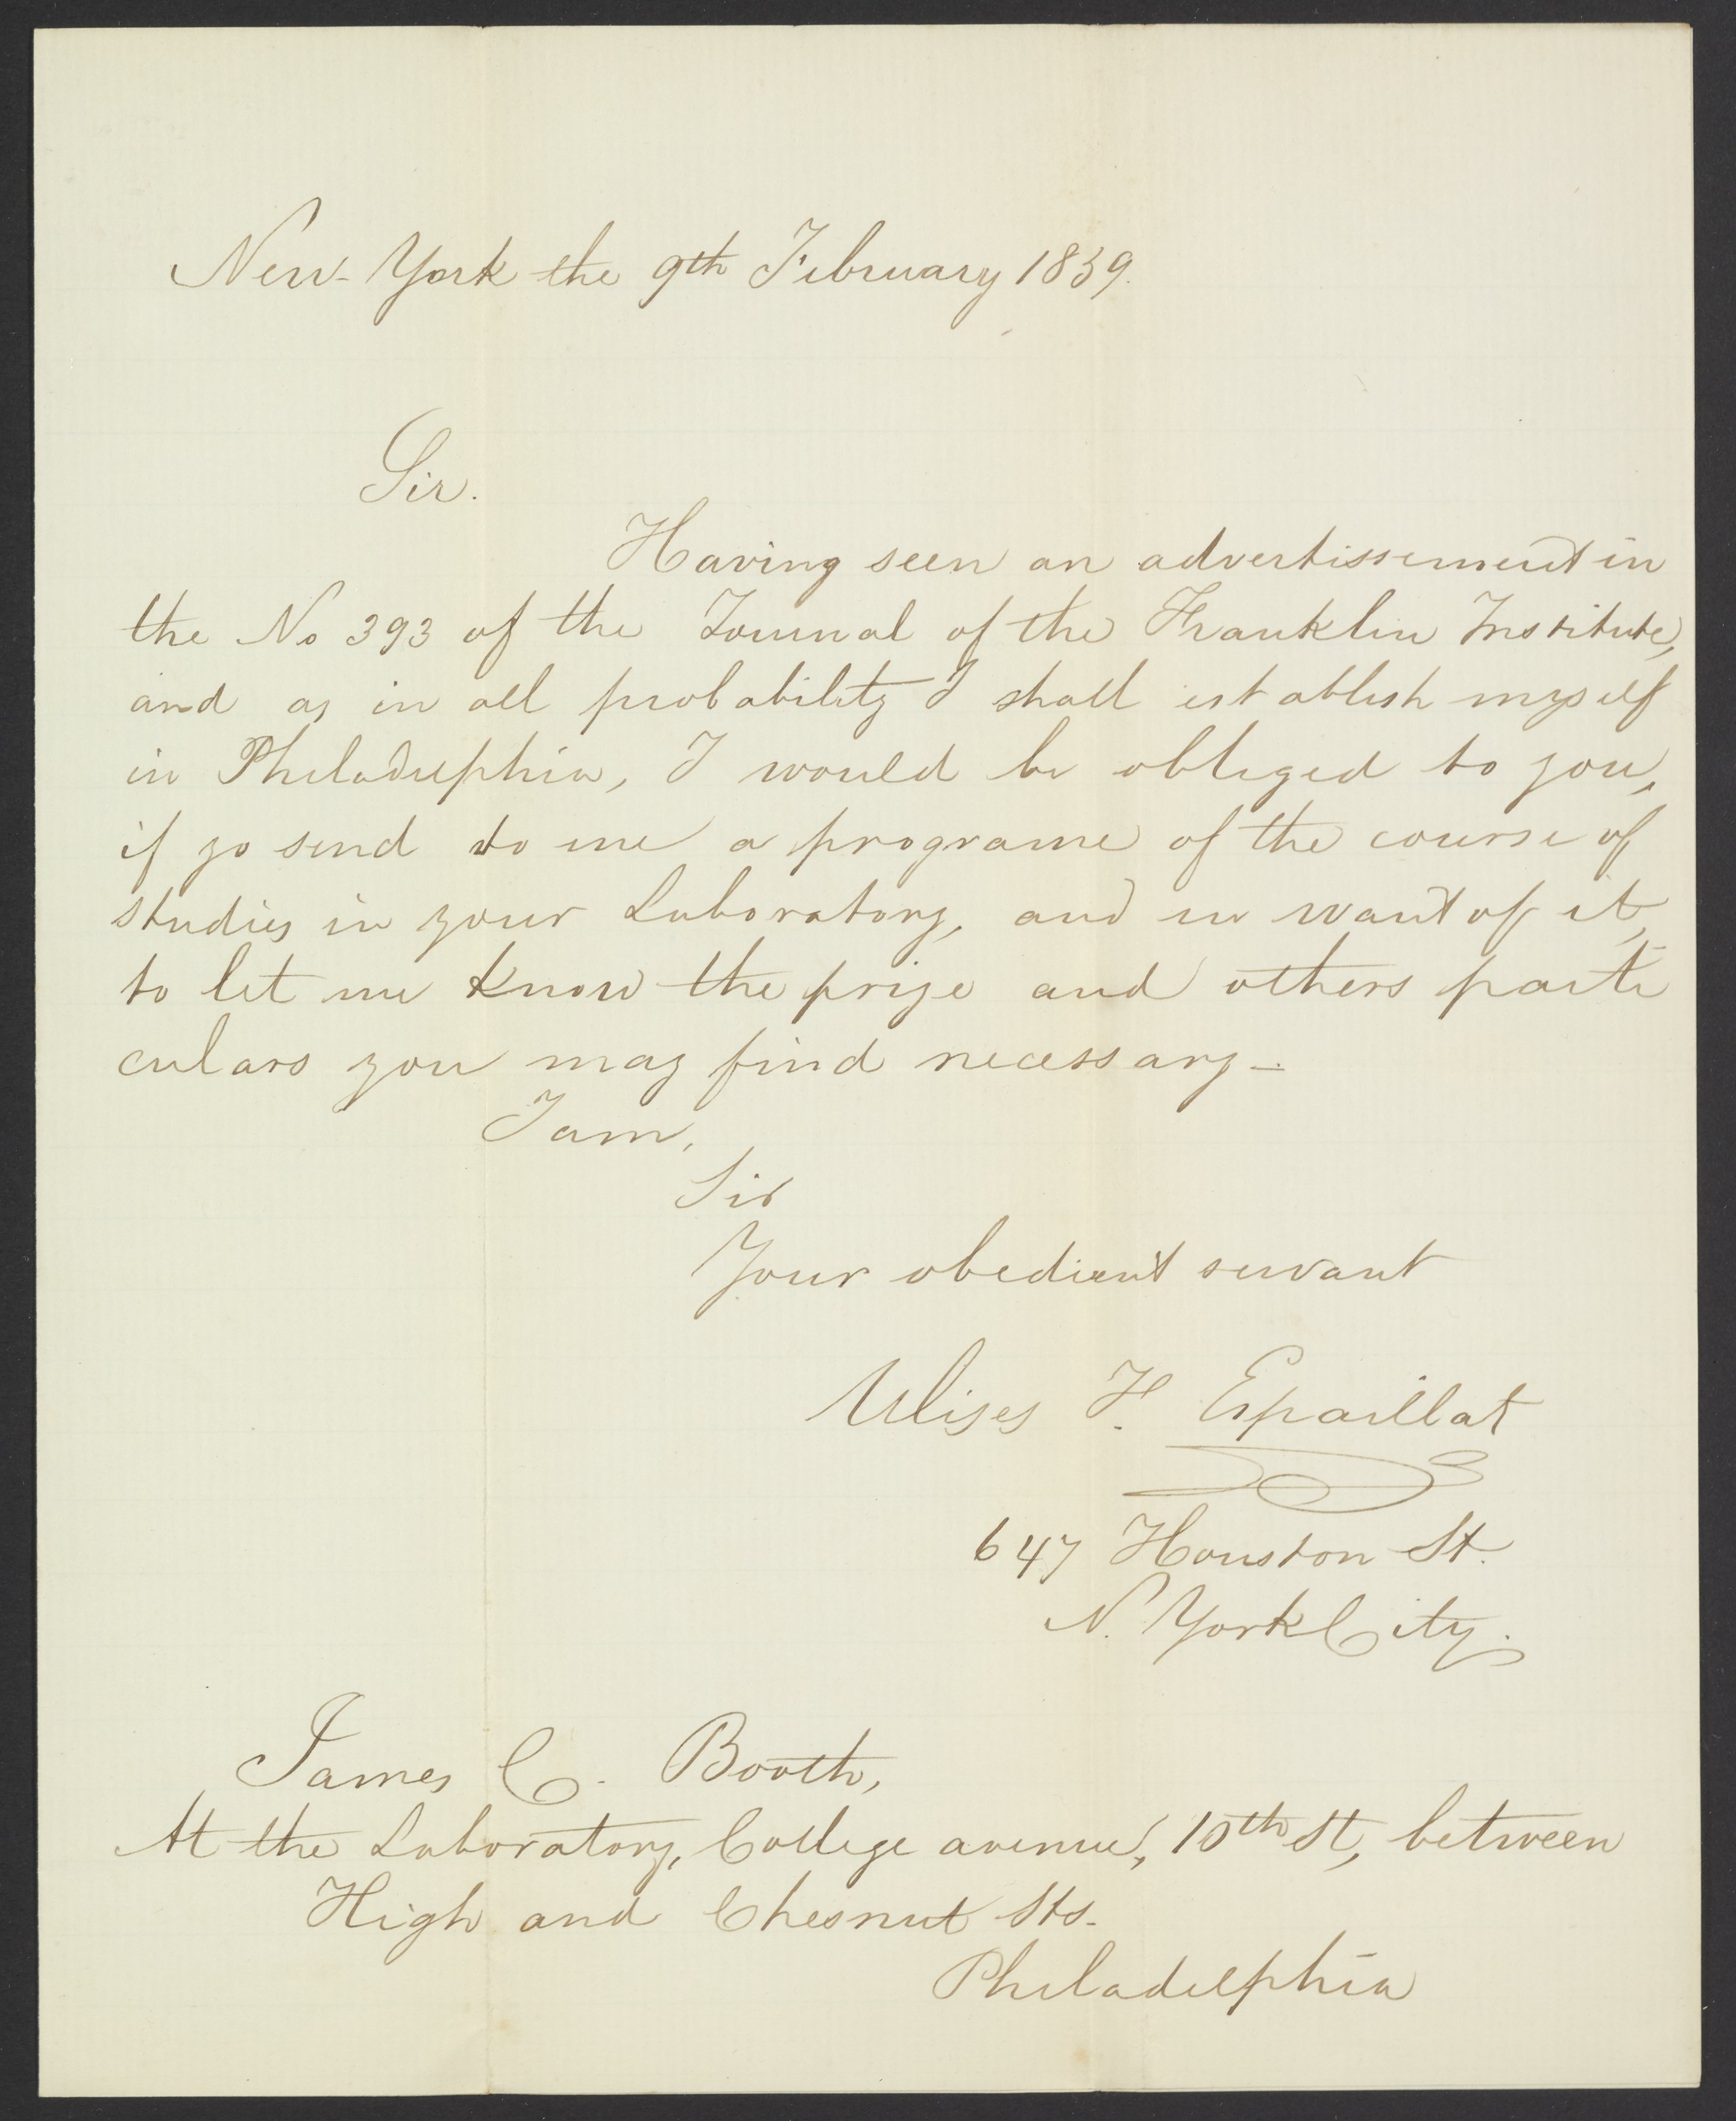 New-York the 9th February 1839.
Sir.
Having seen an advertissement in
the No 393 of the Journal of the Franklin Institute,
and as in all probability I shall establish myself
in Philadelphia, I would be obliged to you,
if yo send to me a programe of the course of
studies in your Laboratory, and in want of it,
to let me know the prize and others parti
culars you may find necessary—
I am,
Sir
Your obedient servant
Ulises F. Espaillat
647 Houston St.
N. York City.
James C. Booth,
At the Laboratory, College avenue, 10th St, between
High and Chesnut Sts.
Philadelphia